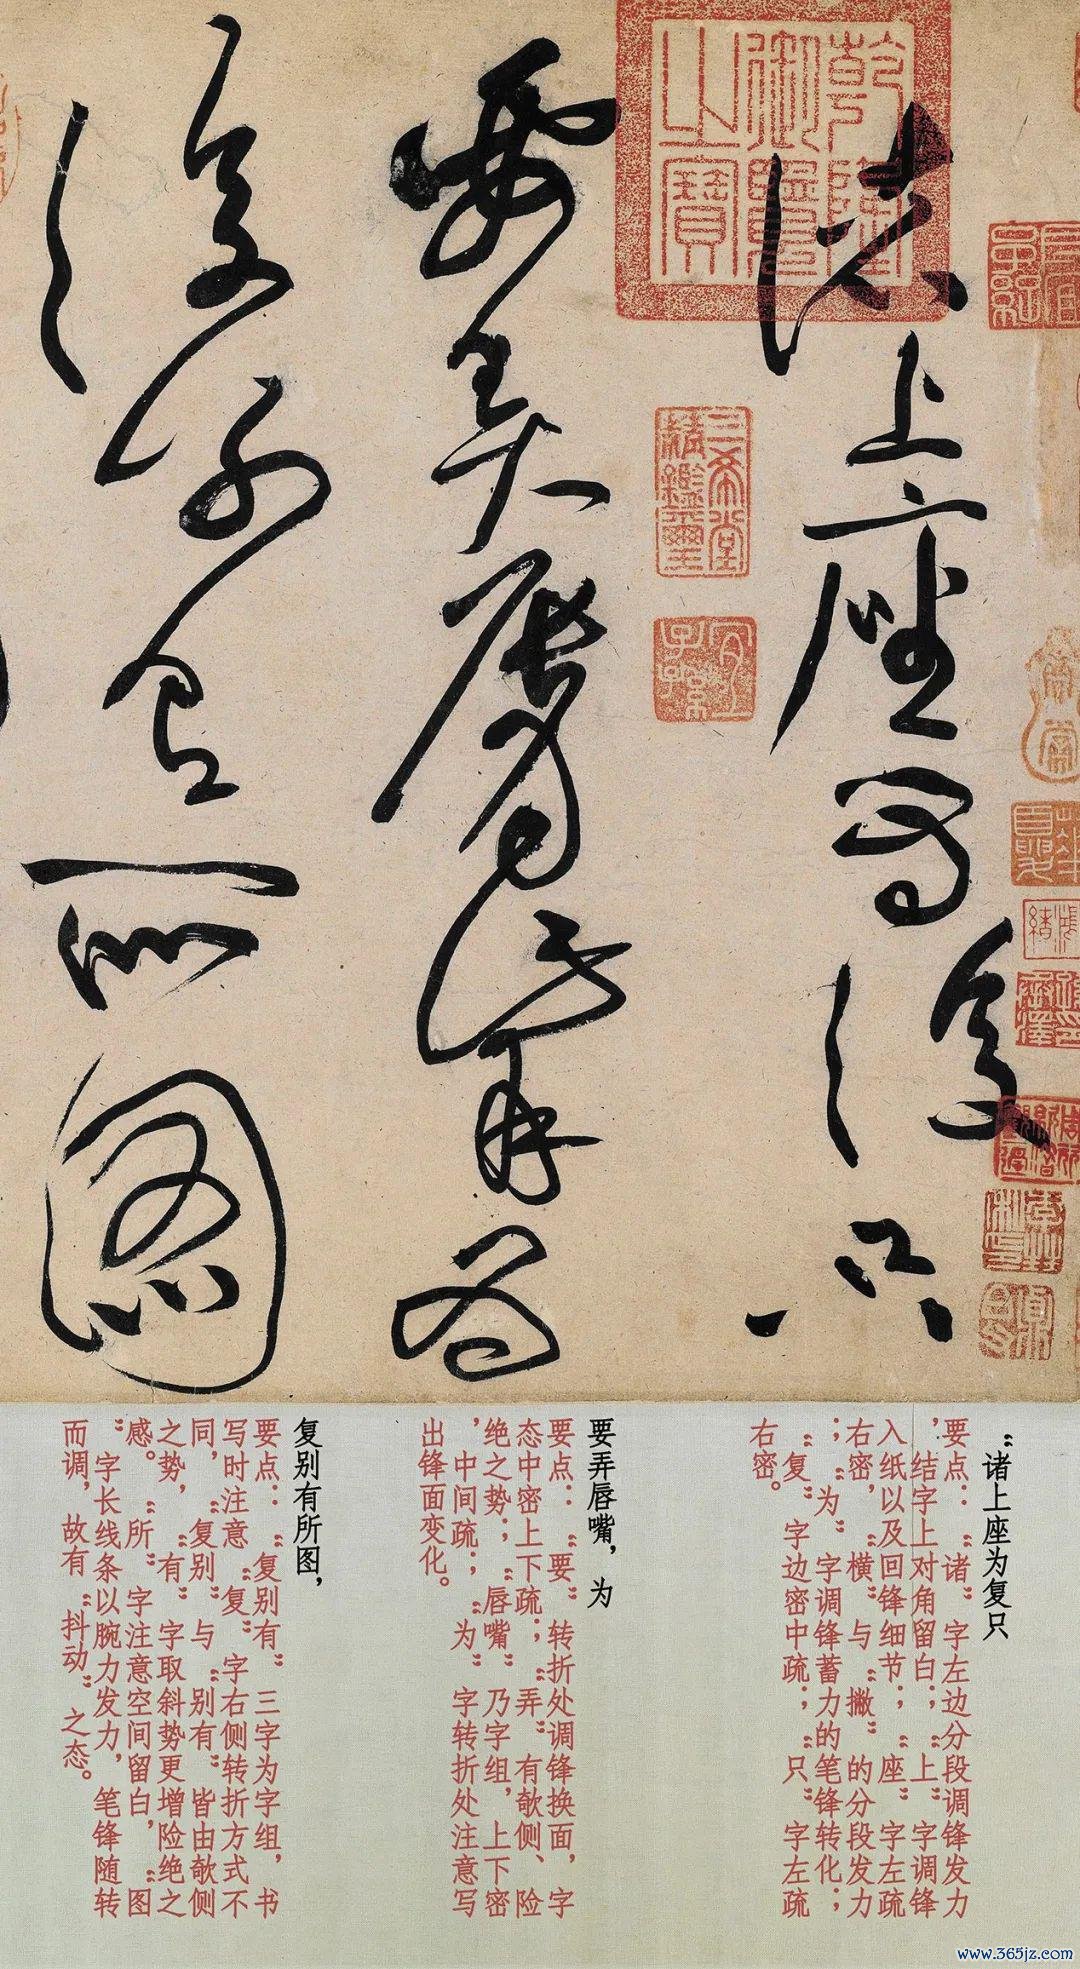 諸上座為復只
要弄脣觜為
復別有所圖
乾隆御覽之寶
三希堂精鑑璽
宜子孫
“诸上座为复只
要点：“诸”字左边分段调锋发力
，结字上对角留白；“上”字调锋
入纸以及回锋细节；“座”字左疏
右密，“横”与“撇”的分段发力
；“为”字调锋蓄力的笔锋转化；
“复”字边密中疏；“只”字左疏
右密。
要弄唇嘴，为
要点：“要”转折处调锋换面，字
态中密上下疏；“弄”有欹侧、险
绝之势；“唇嘴”乃字组，上下密
，中间疏；“为”字转折处注意写
出锋面变化。
复别有所图，
要点：“复别有”三字为字组，书
写时注意“复”字右侧转折方式不
同，“复别”与“别有”皆由欹侧
之势，“有”字取斜势更增险绝之
感。“所”字注意空间留白，“图
”字长线条以腕力发力，笔锋随转
而调，故有“抖动”之态。
www.365jz.com